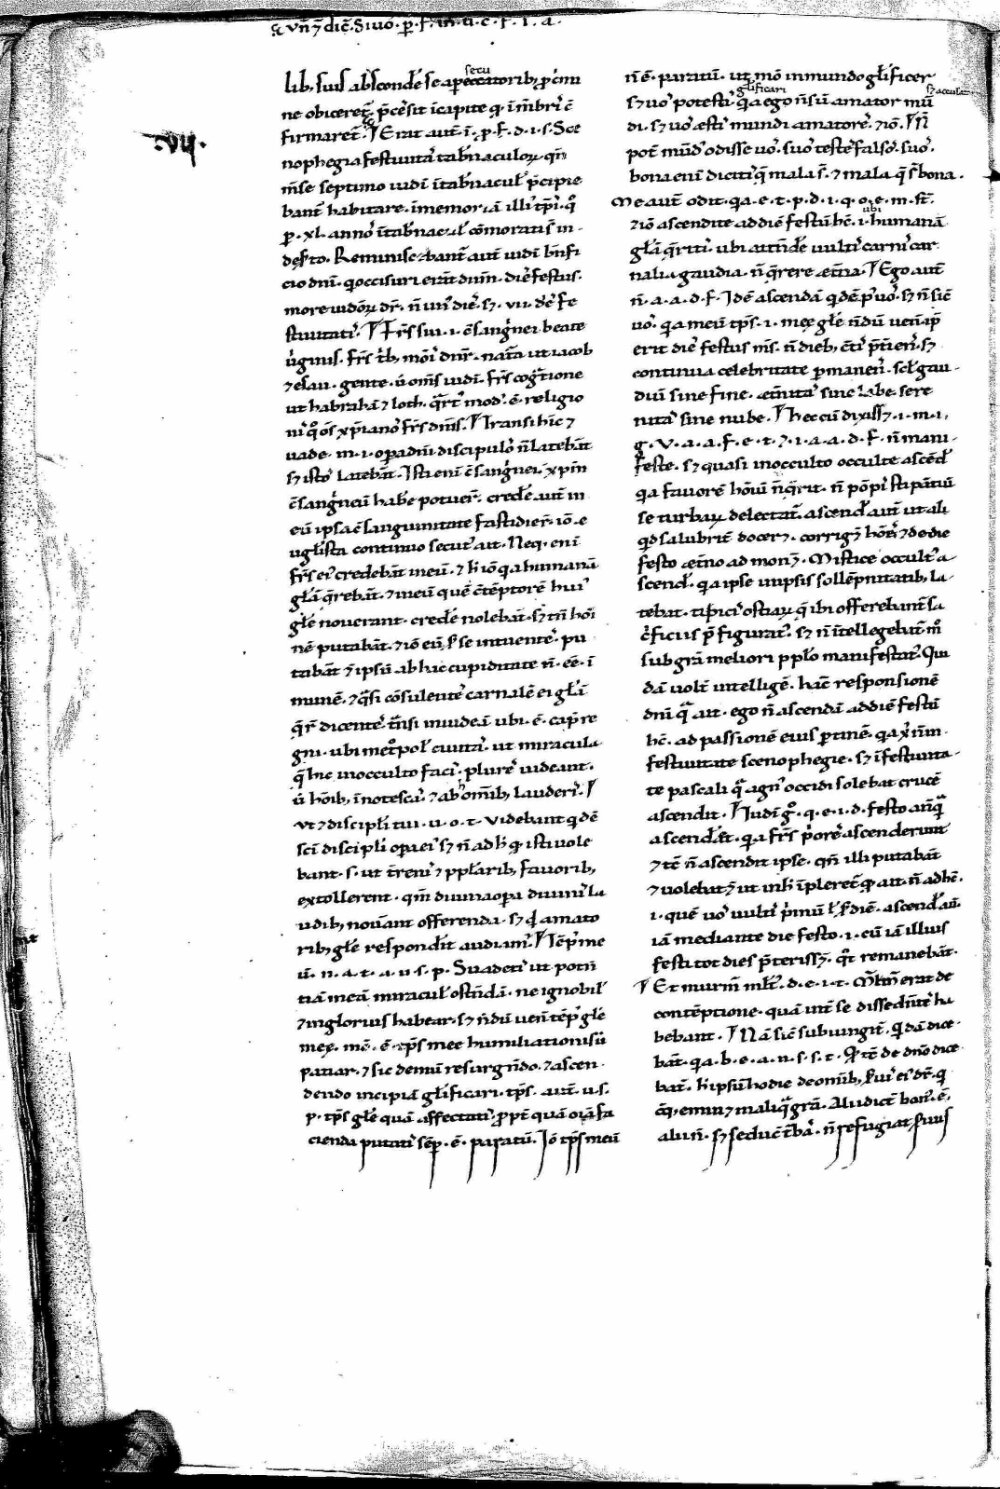 vñ ⁊ dic̄. Si uo. p. f. in. u. c. f. i. a.
.vii.
lib; suis abscondere se a persecutorib; p̄cauit
ne obiceret̄. p̄cēsit in capite qd in mēbris
firmaret̄. Erat aut̄. i. p. f. d. i. s. Sce
nophegia festiuitas tabnaculoꝝ. qn̄
mēse septimo iudei in tabnaculis p̄cipie
bant̄ habitare. in memoriā illi tp̄is. quo
p. xl. annos in tabnaculis cōmorati s̄ in
deserto. Reminiscebant̄ aut̄ iudei bn̄fi
cio dnī. qui occisuri erāt dnm̄. Dies festus
more iudeoꝝ dr̄. n̄ un' dies. sꝫ .vii. dies fe
stiuitatis. Frs̄ sui .i. cōsanguinei beate
uirginis. Frs̄ trib; modis dnr̄. natura ut iacob
⁊ esau. gente. ut om̄s iudei. frs̄ cognatione
ut habrahā ⁊ loth. quart' mod' .ē. religio
nis quo om̄s xpiani frs̄ dnr̄. Transi hinc ⁊
uade. in. i. opa dnī discipulos n̄ latebāt
sꝫ istos latebāt. Isti enī cōsanguinei xpī
cōsanguinei habere potuer̄. credere aut̄ in
eū ipsa cōsanguinitate fastidier̄. iō. e
uglista continuo secut' ait. Neq. enī
frs̄ ei' credebāt in eū. ⁊ h iō qa humanā
glam q̄rebāt. ⁊ in eū quē cōtēptorē hui'
glē nouerant. credere nolebāt. sꝫ tn̄ homi
nē putabāt. ⁊ iō eū se intuentes. pu
tabāt ⁊ ipsū ab hac cupiditate n̄. ee. in
munē. ⁊ qsi cōsulentes carnalē ei glam
q̄r̄ dicentes. trāsi in iudeā ubi. ē. caput re
gni. ubi metropolis ciuitatis. ut miracula
q̄ hic in occulto facis. plures uideant.
ut hoib; innotescas. ⁊ ab omib; lauderis.
Ut ⁊ discipli tui. u. o. t. Videbunt qdē
sci discipli opa ei' sꝫ n̄ ad h qd isti uole
bant. s. ut terrenis ⁊ popularib; fauorib;
extollerent. qm̄ diuina opa diuinis lau
dib; nouerant offerenda. sꝫ qd amato
rib; glē respondit audiam'. Tēp' me
ū. n. a. t. a. u. s. p. Suadetis ut potn̄
tiā meā miraculis ostēdā. ne ignobil'
⁊ inglorius habear. sꝫ n̄dū uen̄ tēp' glē
meę. mō. ē. tp̄s mee humiliationis ū
patiar. ⁊ sic demū resurgendo. ⁊ ascen
dendo incipiā glificari. tp̄s. aut̄. u. s.
p. tp̄s glē quā affectatis. ppt̄ quā oīa fa
cienda putatis sēp. ē. paratū. Iō tp̄s meū
n̄ ē. paratū. ut mō in mundo glificer
glificari sꝫ accusat
sꝫ uos potestis. qa ego n̄ sū amator mū
di. sꝫ uos estis mundi amatores. ⁊ iō. N̄
pot̄ mūd' odisse uos. suos testes falsos. suos.
bona enī dicitis que mala s̄. ⁊ mala que s̄ bona.
Me aut̄ odit. qa. e. t. p. d. i. q. o. e. m. st̄.
⁊ iō ascendite ad diē festū hc̄. i. ubi humanā
glam q̄ritis. ubi attn̄dere uultis carnis car
nalia gaudia. n̄ q̄rere etn̄a. Ego aut̄
n̄. a. a. d. f. Idē ascendā qdē p' uos. sꝫ n̄ sic
uos. qa meū tp̄s. i. meę glē n̄dū uen̄. ip̄
erit dies festus ms̄. n̄ dieb; cēt' p̄tiens. sꝫ
continua celebritate pmanens. scilicet gau
diū sine fine. etn̄itas sine labe. sere
nitas sine nube. Hec cū dixisset. i. m. i.
g. V. a. a. f. e. t. ⁊. i. a. a. d. f. n̄ mani
feste. sꝫ quasi in occulto occulte ascēd'
qa fauorē hoīū n̄ q̄rit. n̄ pōpis stipantiū
se turbaꝝ delectat̄. ascendit aut̄ ut ali
qd salubrit̄ doceret. corrigeret hoīes ⁊ de die
festo etn̄o admoneret. Mistice occult' a
scend'. qa ipse in ipsis sollēpnitatib; la
tebat. tipicis ostiaꝝ q̄ ibi offerebunt̄ sa
crificiis p̄figurat'. sꝫ n̄ intellegebat̄ in
sub gra meliori pplo manifestat'. Qui
dā uolt̄ intelligere. hāc responsionē
dnī q̄ ait. ego n̄ ascendā ad diē festū
hc̄. ad passionē eius ptinere. qa xp̄ n̄ in
festiuitate scenophegie. sꝫ in festiuita
te pascali q̄ agn' occidi solebat crucē
ascendit. Iudei g. q. e. i. d. festo anq̄
ascenderet. qa frs̄ p'ores ascenderunt
⁊ tc̄ n̄ ascendit ipse. qn̄ illi putabāt
⁊ uolebāt. ut in h impleret̄ qd ait. n̄ ad hc̄.
i. quē uos uultis p'mū l' scdm diē. ascend' aut̄
iā mediante die festo. i. cū iā illius
festi tot dies p̄terissēt. qt̄ remanebāt.
Et murm̄ mlt̄. d. e. i. t. Murm̄ erat de
contēptione. quā inter se dissedentes ha
bebant. Nā sic subiungit̄. Qdā dice
bāt. qa. b. e. a. n. s. s. t. Qd tc̄ de dno dice
bāt. h ipsū hodie de omib; seruis ei' dr̄. q
cq; eminet in aliqua gra. Alii dicūt bon'. ē.
alii n̄. sꝫ seducit turbas. n̄ refugiat seruus